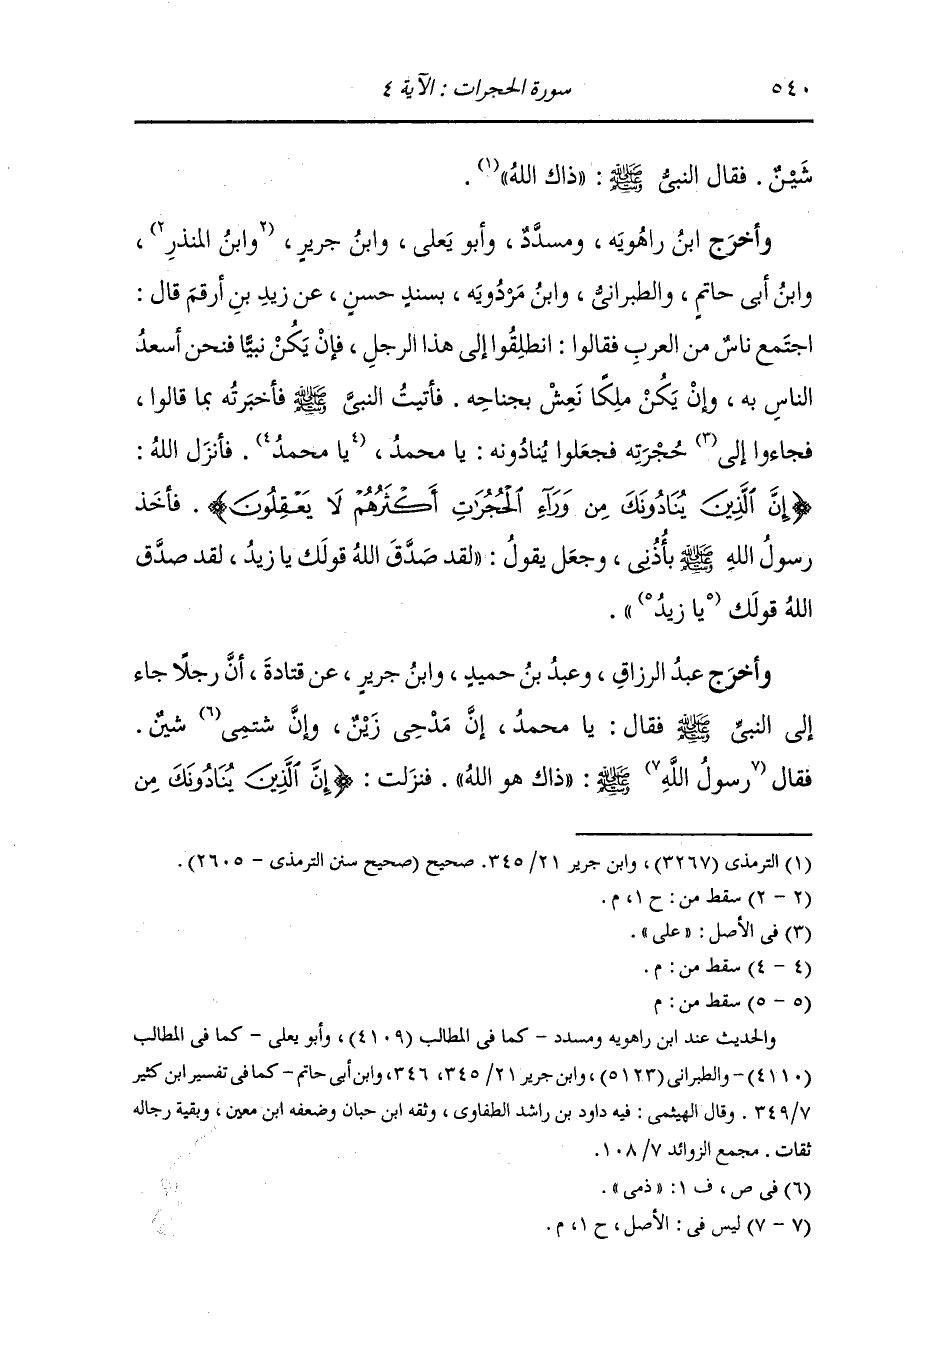 ٥٤٠ سورة الحجرات : الآية ٤
شَيْنٌ . فقال النبىُّ ﷺ : «ذاك اللهُ»(١) .
وأخرَج ابنُ راهُويَه ، ومسدَّدٌ ، وأبو يَعلى ، وابنُ جريرٍ ، (٢وابنُ المنذرِ٢) ،
وابنُ أبى حاتمٍ ، والطبرانىُّ ، وابنُ مَرْدُويَه ، بسندٍ حسنٍ ، عن زيدِ بنِ أرقمَ قال :
اجتَمع ناسٌ من العربِ فقالوا : انطلِقُوا إلى هذا الرجلِ ، فإنْ يَكُنْ نبيًّا فنحن أسعدُ
الناسِ به ، وإنْ يَكُنْ ملِكًا نَعِشْ بجناحِه . فأتيتُ النبىَّ ﷺ فأخبَرتُه بما قالوا ،
فجاءوا إلى(٣) حُجْرَتِه فجعَلوا يُنادُونه : يا محمدُ ، (٤يا محمدُ٤) . فأنزَل اللهُ :
﴿إِنَّ ٱلَّذِينَ يُنَادُونَكَ مِن وَرَآءِ ٱلْحُجُرَٰتِ أَكْثَرُهُمْ لَا يَعْقِلُونَ﴾ . فأخَذ
رسولُ اللهِ ﷺ بأُذُنِى ، وجعَل يقولُ : «لقد صَدَّقَ اللهُ قولَك يا زيدُ ، لقد صدَّق
اللهُ قولَك (٥يا زيدُ٥)» .
وأخرَج عبدُ الرزاقِ ، وعبدُ بنُ حميدٍ ، وابنُ جريرٍ ، عن قتادةَ ، أنَّ رجلًا جاء
إلى النبىِّ ﷺ فقال : يا محمدُ ، إنَّ مَدْحِى زَيْنٌ ، وإنَّ شتمِى(٦) شينٌ .
فقال (٧رسولُ اللَّهِ٧) ﷺ : «ذاك هو اللهُ» . فنزَلت : ﴿إِنَّ ٱلَّذِينَ يُنَادُونَكَ مِن
(١) الترمذى (٣٢٦٧) ، وابن جرير ٢١/ ٣٤٥. صحيح (صحيح سنن الترمذى - ٢٦٠٥) .
(٢ - ٢) سقط من : ح ١، م .
(٣) فى الأصل : «على» .
(٤ - ٤) سقط من : م .
(٥ - ٥) سقط من : م
والحديث عند ابن راهويه ومسدد - كما فى المطالب (٤١٠٩) ، وأبو يعلى - كما فى المطالب
(٤١١٠) - والطبرانى (٥١٢٣) ، وابن جرير ٢١/ ٣٤٥، ٣٤٦، وابن أبى حاتم - كما فى تفسير ابن كثير
٧/ ٣٤٩ . وقال الهيثمى : فيه داود بن راشد الطفاوى ، وثقه ابن حبان وضعفه ابن معين ، وبقية رجاله
ثقات . مجمع الزوائد ٧/ ١٠٨.
(٦) فى ص ، ف ١: «ذمى» .
(٧ - ٧) ليس فى : الأصل ، ح ١، م .